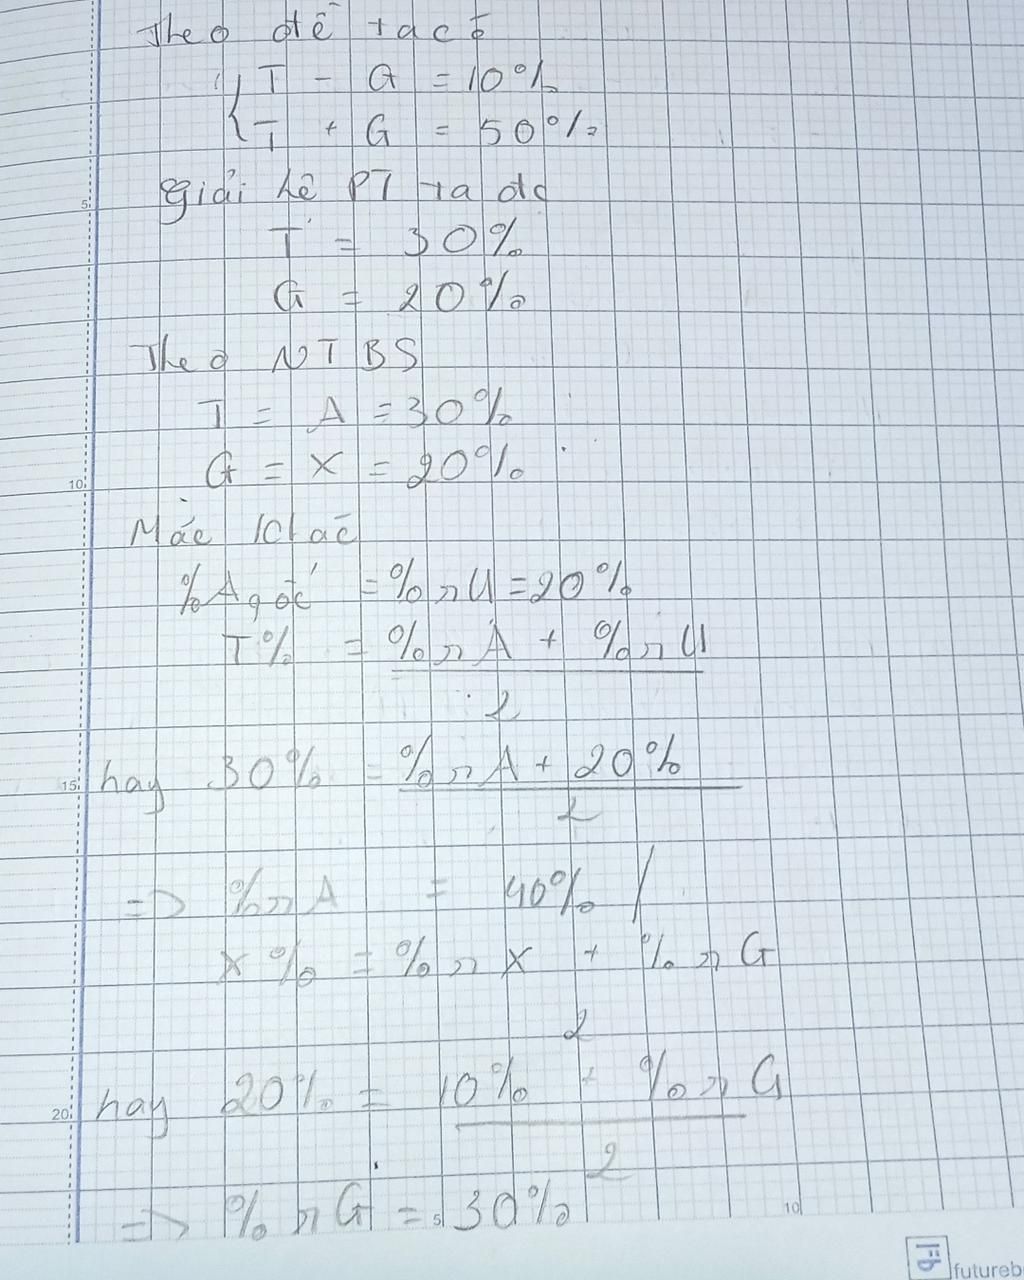 Theo đề ta có
T - G = 10%
T + G = 50%
5
giải hệ PT ta đc
T = 30%
G = 20%
Theo NTBS
T = A = 30%
G = X = 20%
10
Mặc khác
%A gốc = % rU = 20%
T% = % rA + % rU
2
15
hay 30% = % rA + 20%
2
=> % rA = 40%
X% = % rX + % rG
2
20
hay 20% = 10% + % rG
2
=> % rG = 30%
5
10
futureb